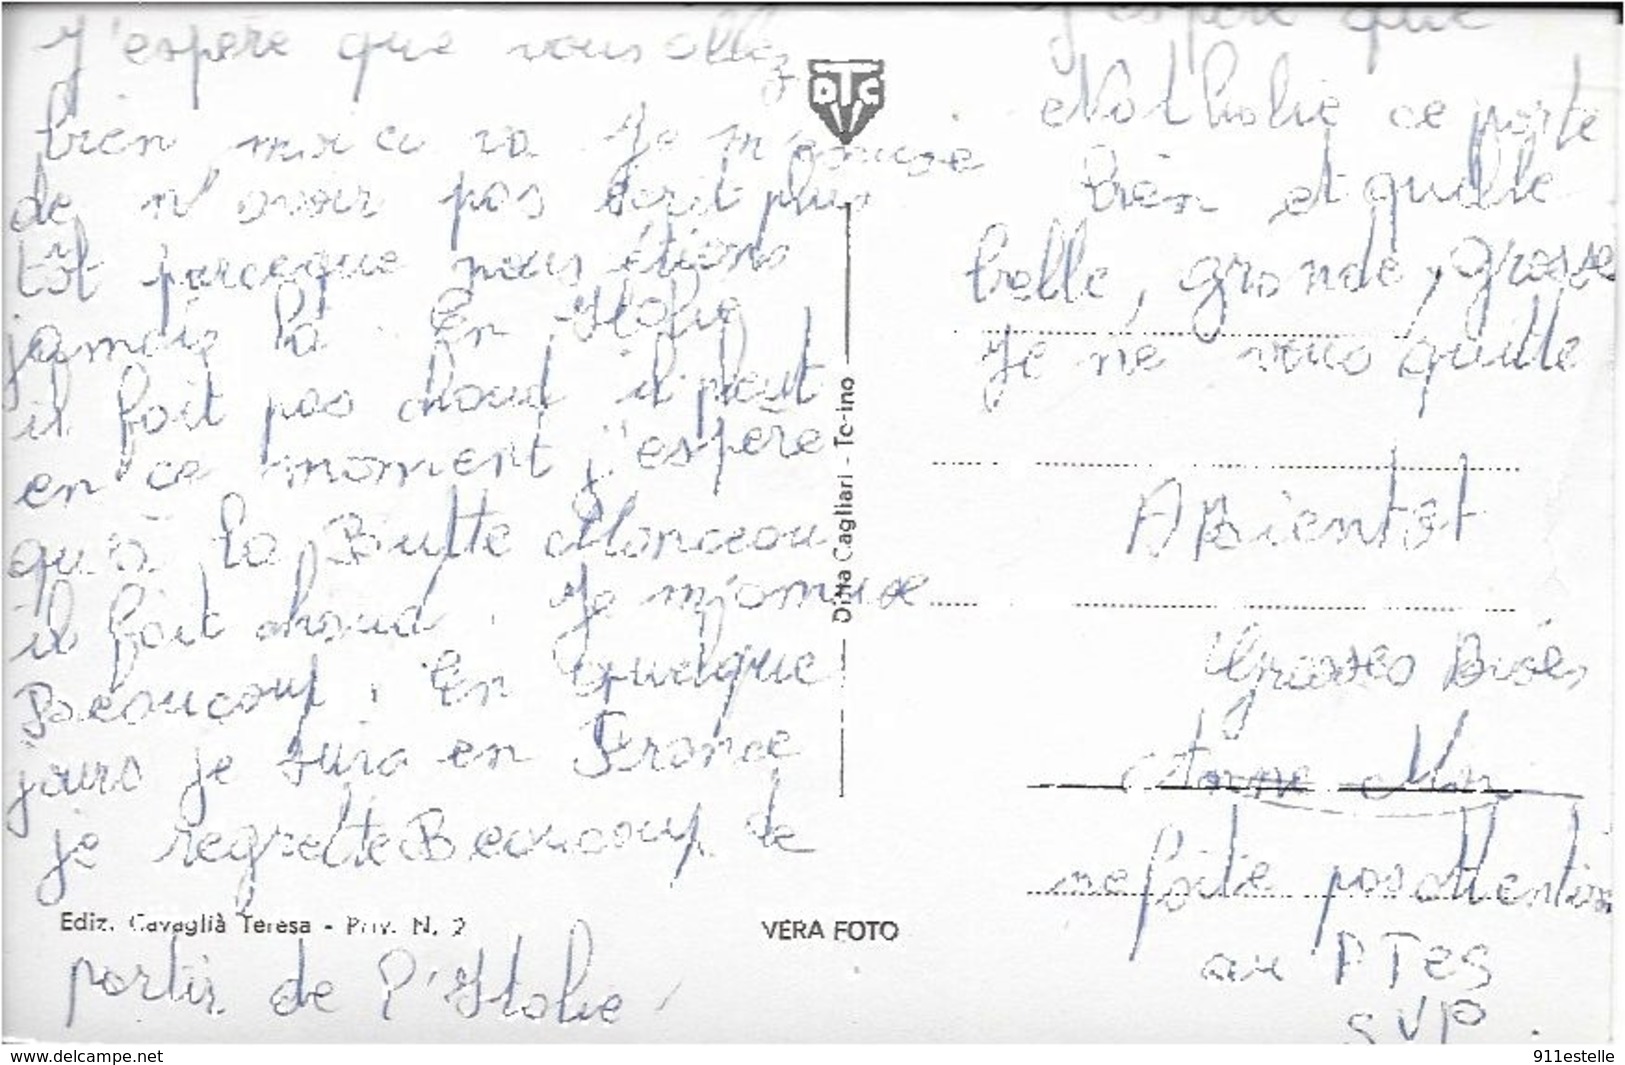 J'espère que vous allez
bien moi ca va Je m'excuse
de n'avoir pas écrit plus
tôt parceque nous étions
jamais là. En Italie
il fait pas chaud il pleut
en ce moment j'espère
qu'à la Butte Monceau
il fait chaud. Je m'amuse
Beaucoup. En Quelque
jours je sura en France
je regrette Beaucoup de
partir de l'Italie
Ediz. Cavaglià Teresa - Priv. N. 2
VERA FOTO
DTC
Ditta Cagliari - Torino
J'espère que
Nathalie ce porte
bien et quelle
belle, grande, grosse
Je ne vous quitte
A Bientot
Grosses Bises
ne faite pas attention
au PTes
SVP.
www.delcampe.net
911estelle